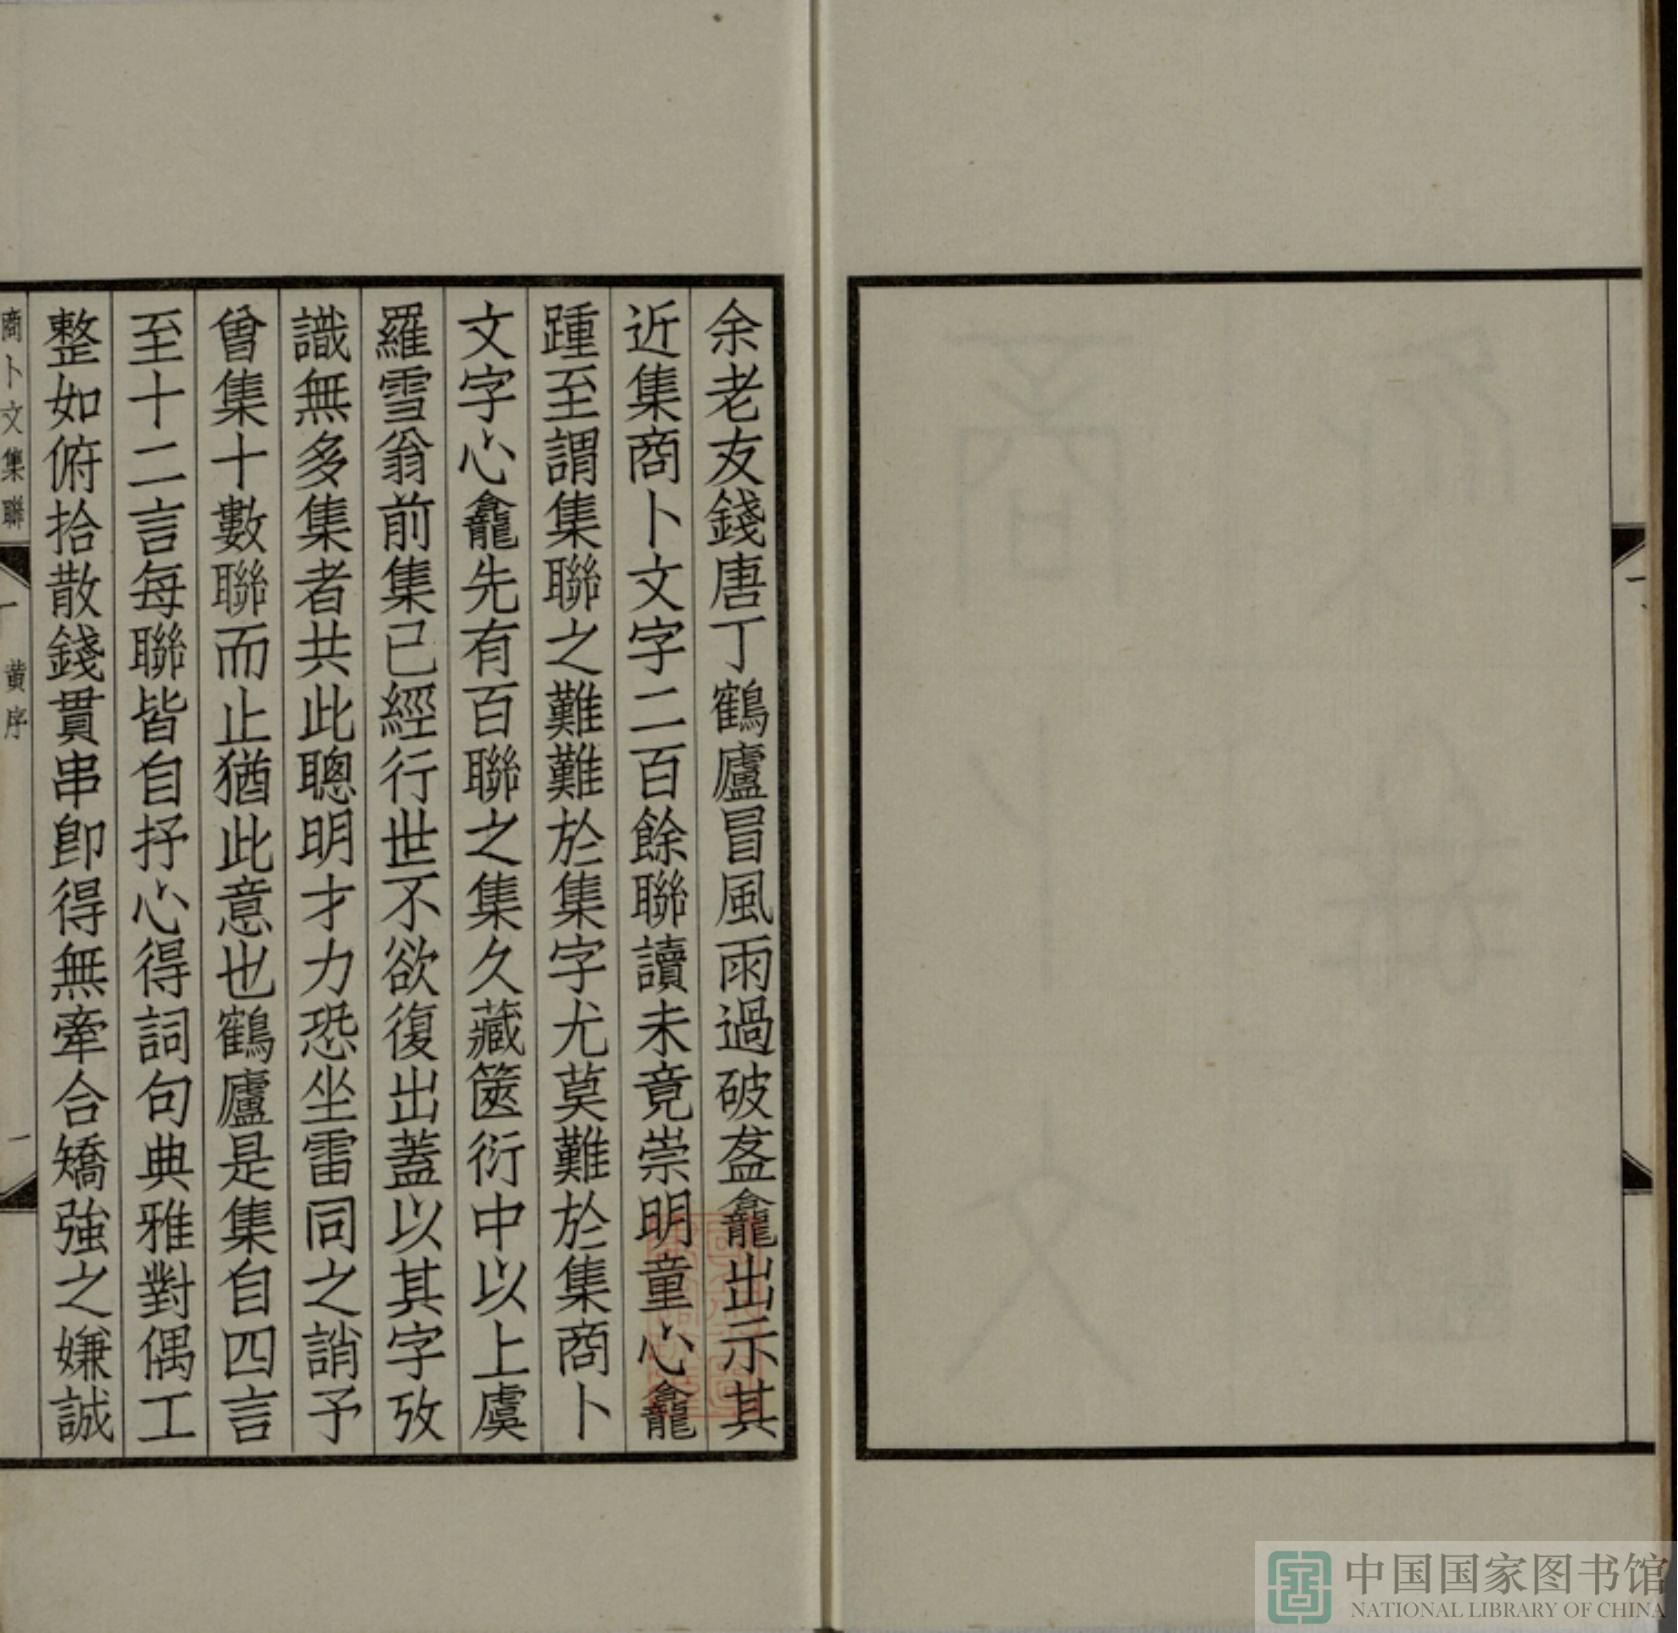 余老友錢唐丁鶴廬冒風雨過破盋龕出示其
近集商卜文字二百餘聯讀未竟崇明童心龕
踵至謂集聯之難難於集字尤莫難於集商卜
文字心龕先有百聯之集久藏篋衍中以上虞
羅雪翁前集已經行世不欲復出蓋以其字攷
識無多集者共此聰明才力恐坐雷同之誚予
曾集十數聯而止猶此意也鶴廬是集自四言
至十二言每聯皆自抒心得詞句典雅對偶工
整如俯拾散錢貫串即得無牽合矯強之嫌誠
商卜文集聯
黄序
一
中国国家图书馆
NATIONAL LIBRARY OF CHINA